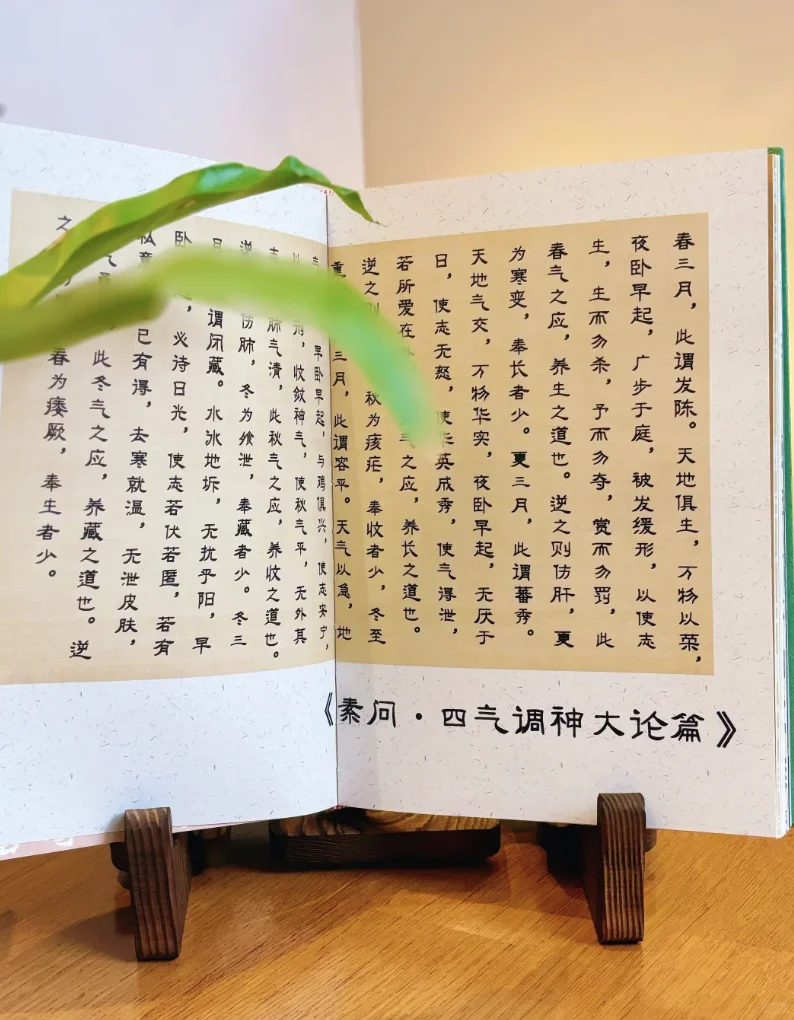 春三月，此谓发陈。天地俱生，万物以荣，
夜卧早起，广步于庭，被发缓形，以使志
生，生而勿杀，予而勿夺，赏而勿罚，此
春气之应，养生之道也。逆之则伤肝，夏
为寒变，奉长者少。夏三月，此谓蕃秀。
天地气交，万物华实，夜卧早起，无厌于
日，使志无怒，使华英成秀，使气得泄，
若所爱在 气之应，养长之道也。
逆之则 秋为痎疟，奉收者少，冬至
重 三月，此谓容平。天气以急，地
早卧早起，与鸡俱兴，使志安宁，
刑，收敛神气，使秋气平，无外其
肺气清，此秋气之应，养收之道也。
逆 伤肺，冬为飧泄，奉藏者少。冬三
月 谓闭藏。水冰地坼，无扰乎阳，早
卧 必待日光，使志若伏若匿，若有
私意 已有得，去寒就温，无泄皮肤，
气 此冬气之应，养藏之道也。逆
之 春为痿厥，奉生者少。
《素问·四气调神大论篇》